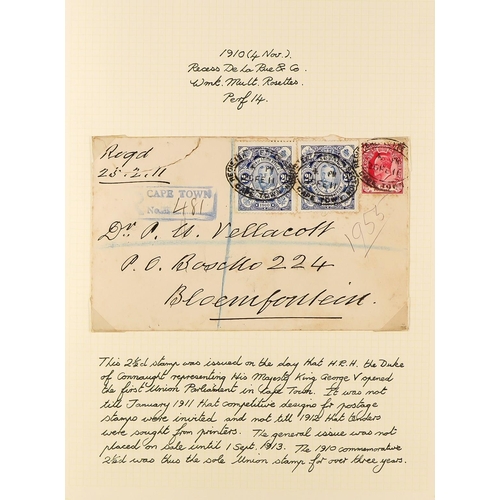 1910 (4 Nov.)
Recess De La Rue & Co.
Wmk. Mult. Rosettes.
Perf 14.
Regd
23.2.11
CAPE TOWN
No. 481
1955
Dr P. U. Vellacott
P.O. Box 224
Bloemfontein.
This 2½d stamp was issued on the day that H.R.H. the Duke
of Connaught representing His Majesty King George V opened
the first Union Parliament in Cape Town. It was not
till January 1911 that competitive designs for postage
stamps were invited and not till 1912 that tenders
were sought from printers. The general issue was not
placed on sale until 1 Sept. 1913. The 1910 commemorative
2½d was thus the sole Union stamp for over three years.